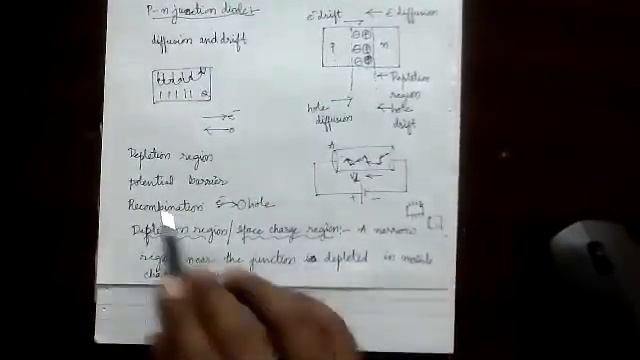 P-n junction diodes
diffusion and drift
e⁻ drift
e⁻ diffusion
P
n
Depletion
region
hole
diffusion
hole
drift
e⁻
o
Depletion region
potential barrier
Recombination e⁻ → O hole
A
+ -
Depletion region / Space charge region :- A narrow
region near the junction is depleted in mobile